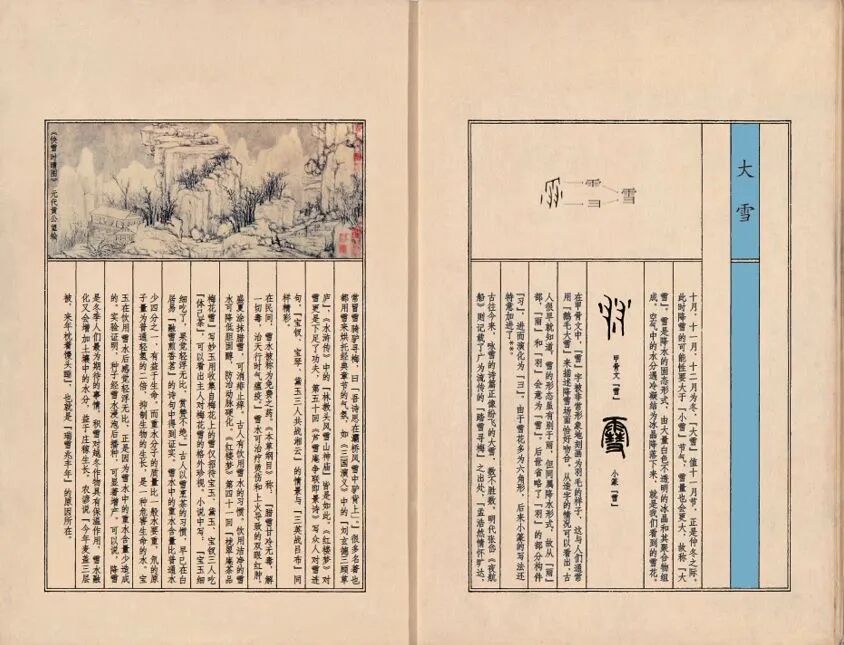 大雪
雪
十月、十一月、十二月为冬,「大雪」值十一月节,正是仲冬之际。
此时降雪的可能性要大于「小雪」节气,雪量也会更大,故称「大
雪」。雪是降水的固态形式,由大量白色不透明的冰晶和其聚合物组
成。空气中的水分遇冷凝结为冰晶降落下来,就是我们看到的雪花。
甲骨文「雪」
小篆「雪」
在甲骨文中,「雪」字被非常形象地刻画为羽毛的样子,这与人们通常
用「鹅毛大雪」来描述降雪场面恰好吻合。从造字的情况可以看出,古
人很早就知道,雪的形态虽有别于雨,但同属降水形式,故从「雨」
部,「雨」和「羽」会意为「雪」,后世省略了「羽」的部分构件
「习」,进而演化为「彐」。由于雪花多为六角形,后来小篆的写法还
特意加进了「**」。
古往今来,咏雪的诗篇正像纷飞的大雪,数不胜数。明代张岱《夜航
船》则记载了广为流传的「踏雪寻梅」之出处,「孟浩然情怀旷达,
常冒雪骑驴寻梅,曰『吾诗思在灞桥风雪中驴背上』」。很多名著也
都用雪来烘托经典章节的气氛,如《三国演义》中的「刘玄德三顾草
庐」、《水浒传》中的「林教头风雪山神庙」皆是如此。《红楼梦》对
雪更是下足了功夫,第五十回《芦雪庵争联即景诗》写众人对雪连
句,「宝钗、宝琴、黛玉三人共战湘云」的情景与「三英战吕布」同
样精彩。
在民间,雪水被称为免费之药。《本草纲目》称,「腊雪甘冷无毒,解
一切毒,治天行时气瘟疫。」雪水可治疗烫伤和上火导致的双眼红肿,
盛夏涂抹腊雪,可消痱止痒。古人有饮用雪水的习惯,饮用洁净的雪
水可降低胆固醇,防治动脉硬化。《红楼梦》第四十一回「栊翠庵茶品
梅花雪」写妙玉用收集自梅花上的雪仅招待宝玉、黛玉、宝钗三人吃
「体己茶」,可以看出主人对梅花雪的格外珍视。小说中写,「宝玉细
细吃了,果觉轻浮无比,赏赞不绝。」古人以雪烹茶的习惯,早已在白
居易「融雪煎香茗」的诗句中得到证实。雪水中的重水含量比普通水
少四分之一,有益于生命。而重水分子的质量比一般水要重,氘的原
子量为普通轻氢的二倍,抑制生物的生长,是一种危害生命的水。宝
玉在饮用雪水后感觉轻浮无比,正是因为雪水中的重水含量少造成
的。实验证明,种子经雪水浸泡后播种,可显著增产。可以说,降雪
是冬季人们最为期待的事情,积雪对越冬作物具有保温作用,雪水融
化又会增加土壤中的水分,益于庄稼生长。农谚说「今年麦盖三层
被,来年枕着馒头睡」,也就是「瑞雪兆丰年」的原因所在。
元代黄公望绘